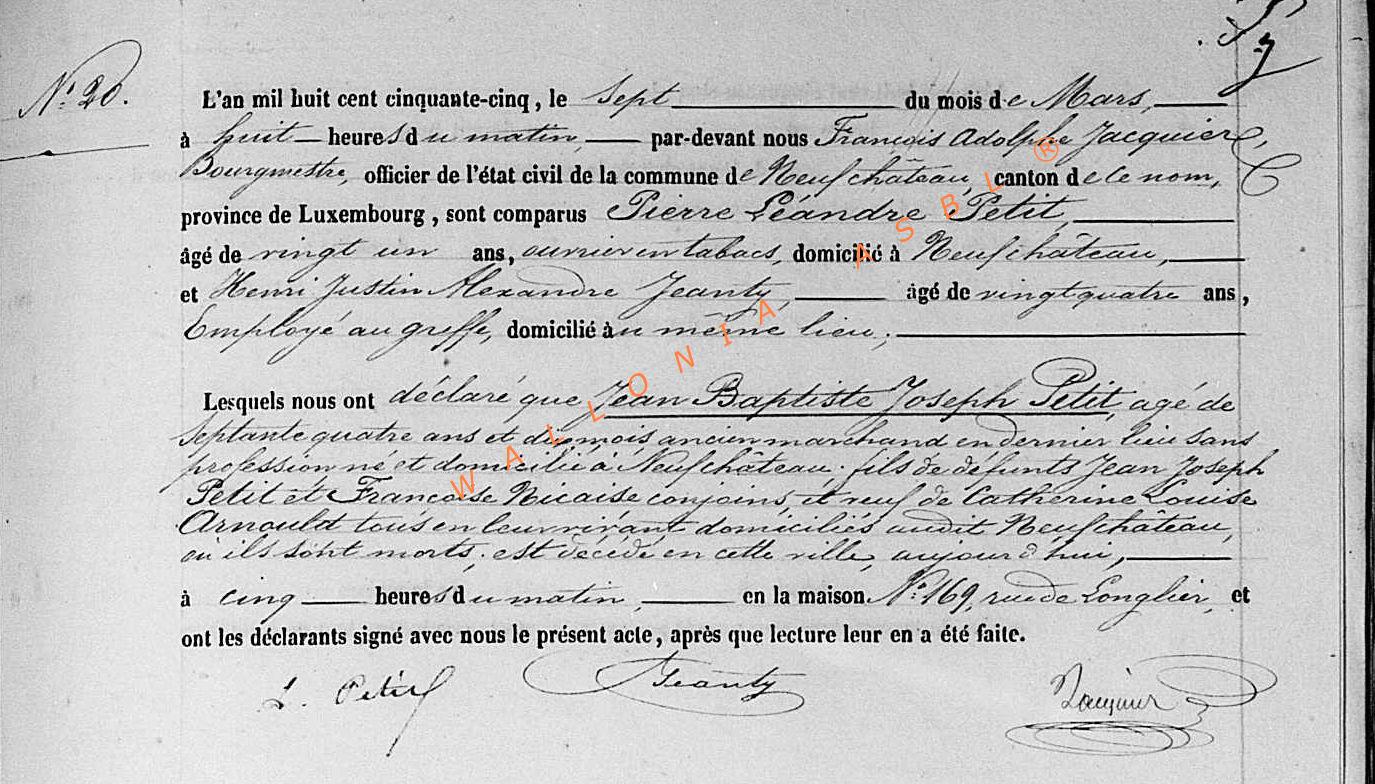 N.º 20.
L'an mil huit cent cinquante-cinq, le sept du mois de Mars,
à huit heures du matin, par-devant nous François Adolphe Jacquier,
Bourgmestre, officier de l'état civil de la commune de Neufchâteau, canton de ce nom,
province de Luxembourg, sont comparus Pierre Léandre Petit,
âgé de vingt un ans, ouvrier en tabacs, domicilié à Neufchâteau,
et Henri Justin Alexandre Jeanty, âgé de vingt quatre ans,
Employé au greffe, domicilié au même lieu;
Lesquels nous ont déclaré que Jean Baptiste Joseph Petit, agé de
septante quatre ans et dix mois, ancien marchand en dernier lieu sans
profession né et domicilié à Neufchâteau, fils de défunts Jean Joseph
Petit et Francoise Nicaise conjoins, et veuf de Catherine Louise
Arnould tous en leur vivant domiciliés audit Neufchâteau,
où ils sont morts; est décédé en cette ville, aujourd'hui,
à cinq heures du matin, en la maison N.º 169, rue de Longlier, et
ont les déclarants signé avec nous le présent acte, après que lecture leur en a été faite.
L. Petit Jeanty Jacquier
WALLONIA ASBL ®